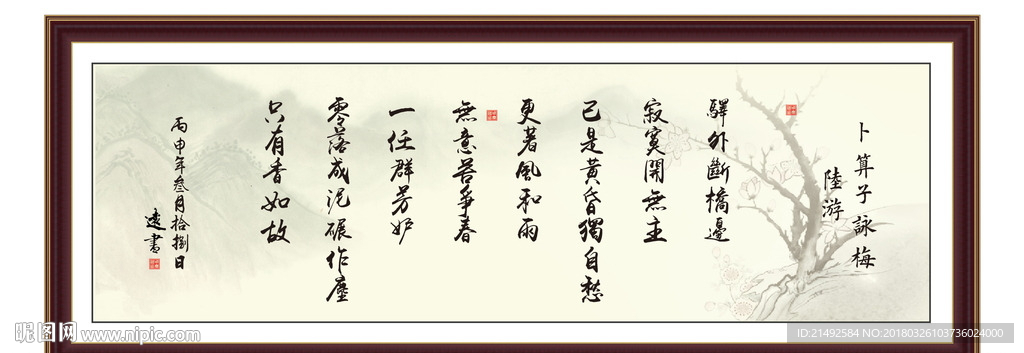 卜算子詠梅
陸游
驛外斷橋邊
寂寞開無主
已是黃昏獨自愁
更著風和雨
無意苦爭春
一任群芳妒
零落成泥碾作塵
只有香如故
丙申年叁月拾捌日
遠書
昵图网 www.nipic.com
ID:21492584 NO:20180326103736024000